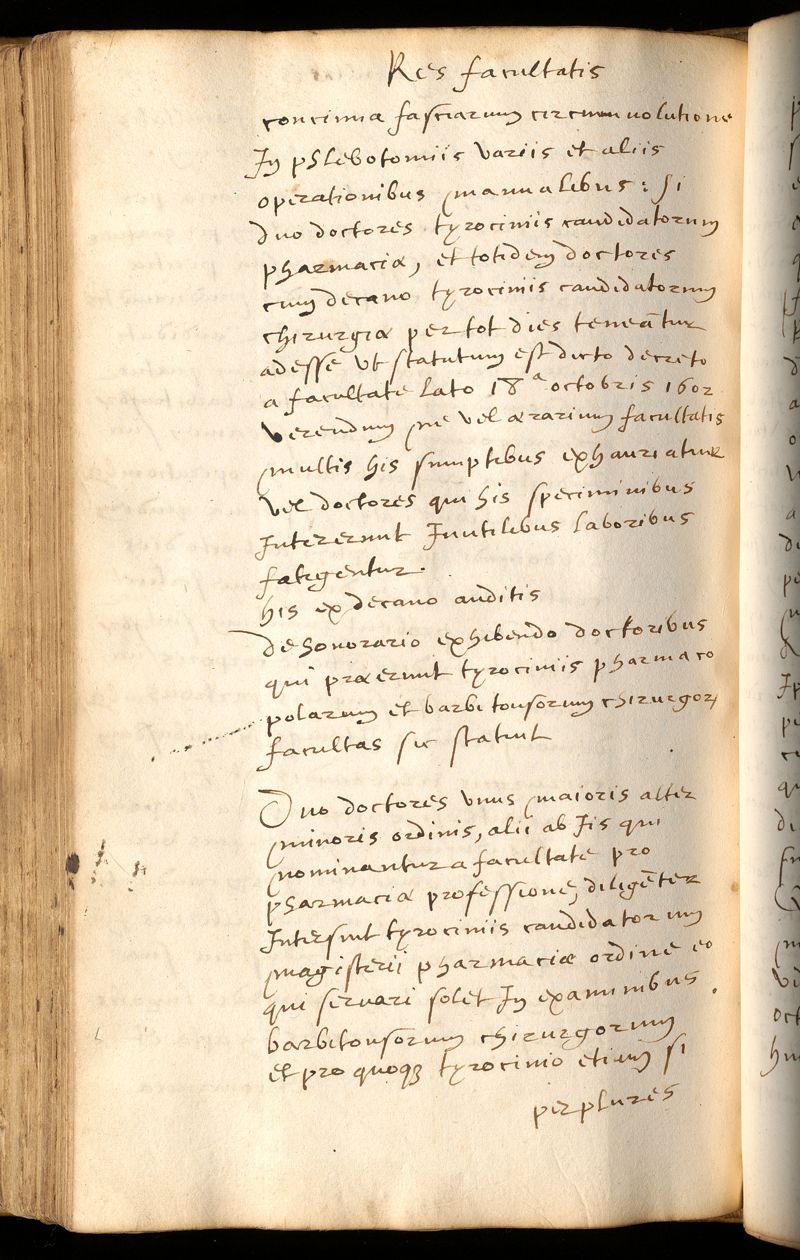 Res facultatis
concinna fasciarum circumuolutione
In phlebotomiis variis et aliis
operationibus manualibus: si
duo doctores tyrociniis candidatorum
pharmaciæ, et totidem doctores
cum decano tyrociniis candidatorum
chirurgiæ per tot dies teneātur
adesse vt statutum est dicto decreto
a facultate lato 18ª octobris 1602
verendum ne vel ærarium facultatis
multis his sumptibus exhauriatur
vel doctores qui his speciminibus
Intererunt Inutilibus laboribus
fatigentur.
his ex decano auditis
de honorario exhibendo doctoribus
qui præerunt tyrociniis pharmaco
polarum et barbitonsorum chirurgorꝝ
facultas sic statuit
Duo doctores vnus maioris alter
minoris ordinis, alii ab Iis qui
nominantur a facultate pro
pharmaciæ professione, diligēter
Intersint tyrociniis candidatorum
magisterii pharmaciæ ordine eo
qui seruari solet In examinibus
barbitonsorum chirurgorum
et pro quoqꝫ tyrocinio etiam si
per plures